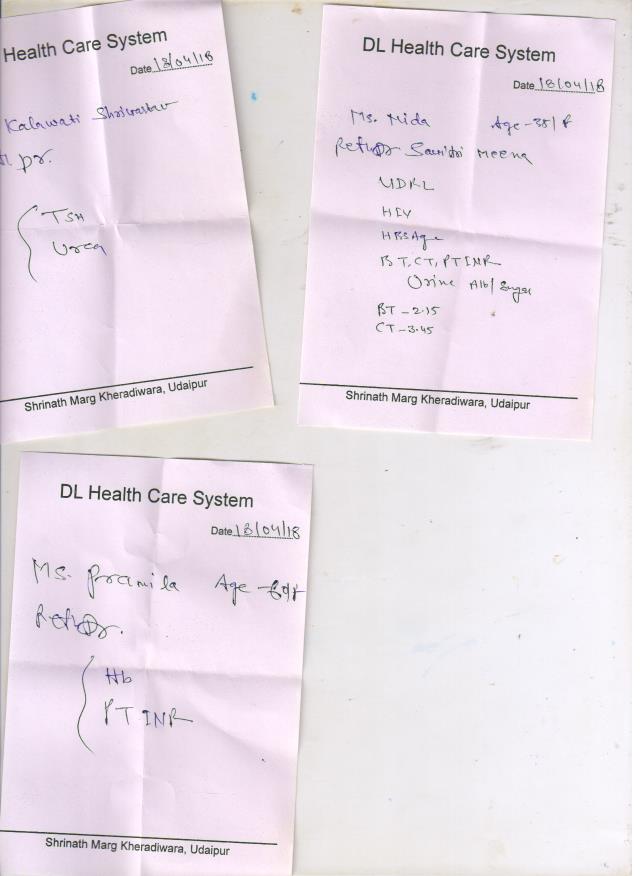 Health Care System
Date 18/04/18
Kalawati Shrivastav
pr.
TSH
Urea
Shrinath Marg Kheradiwara, Udaipur
DL Health Care System
Date 18/04/18
Ms. Nida Age - 35/f
Ref by Dr Savitri Meena
VDRL
HIV
HBSAge
BT, CT, PTINR
Urine Alb/Suger
BT - 2.15
CT - 3.45
Shrinath Marg Kheradiwara, Udaipur
DL Health Care System
Date 18/04/18
Ms. Pramila Age -
Ref by Dr.
Hb
PT INR
Shrinath Marg Kheradiwara, Udaipur